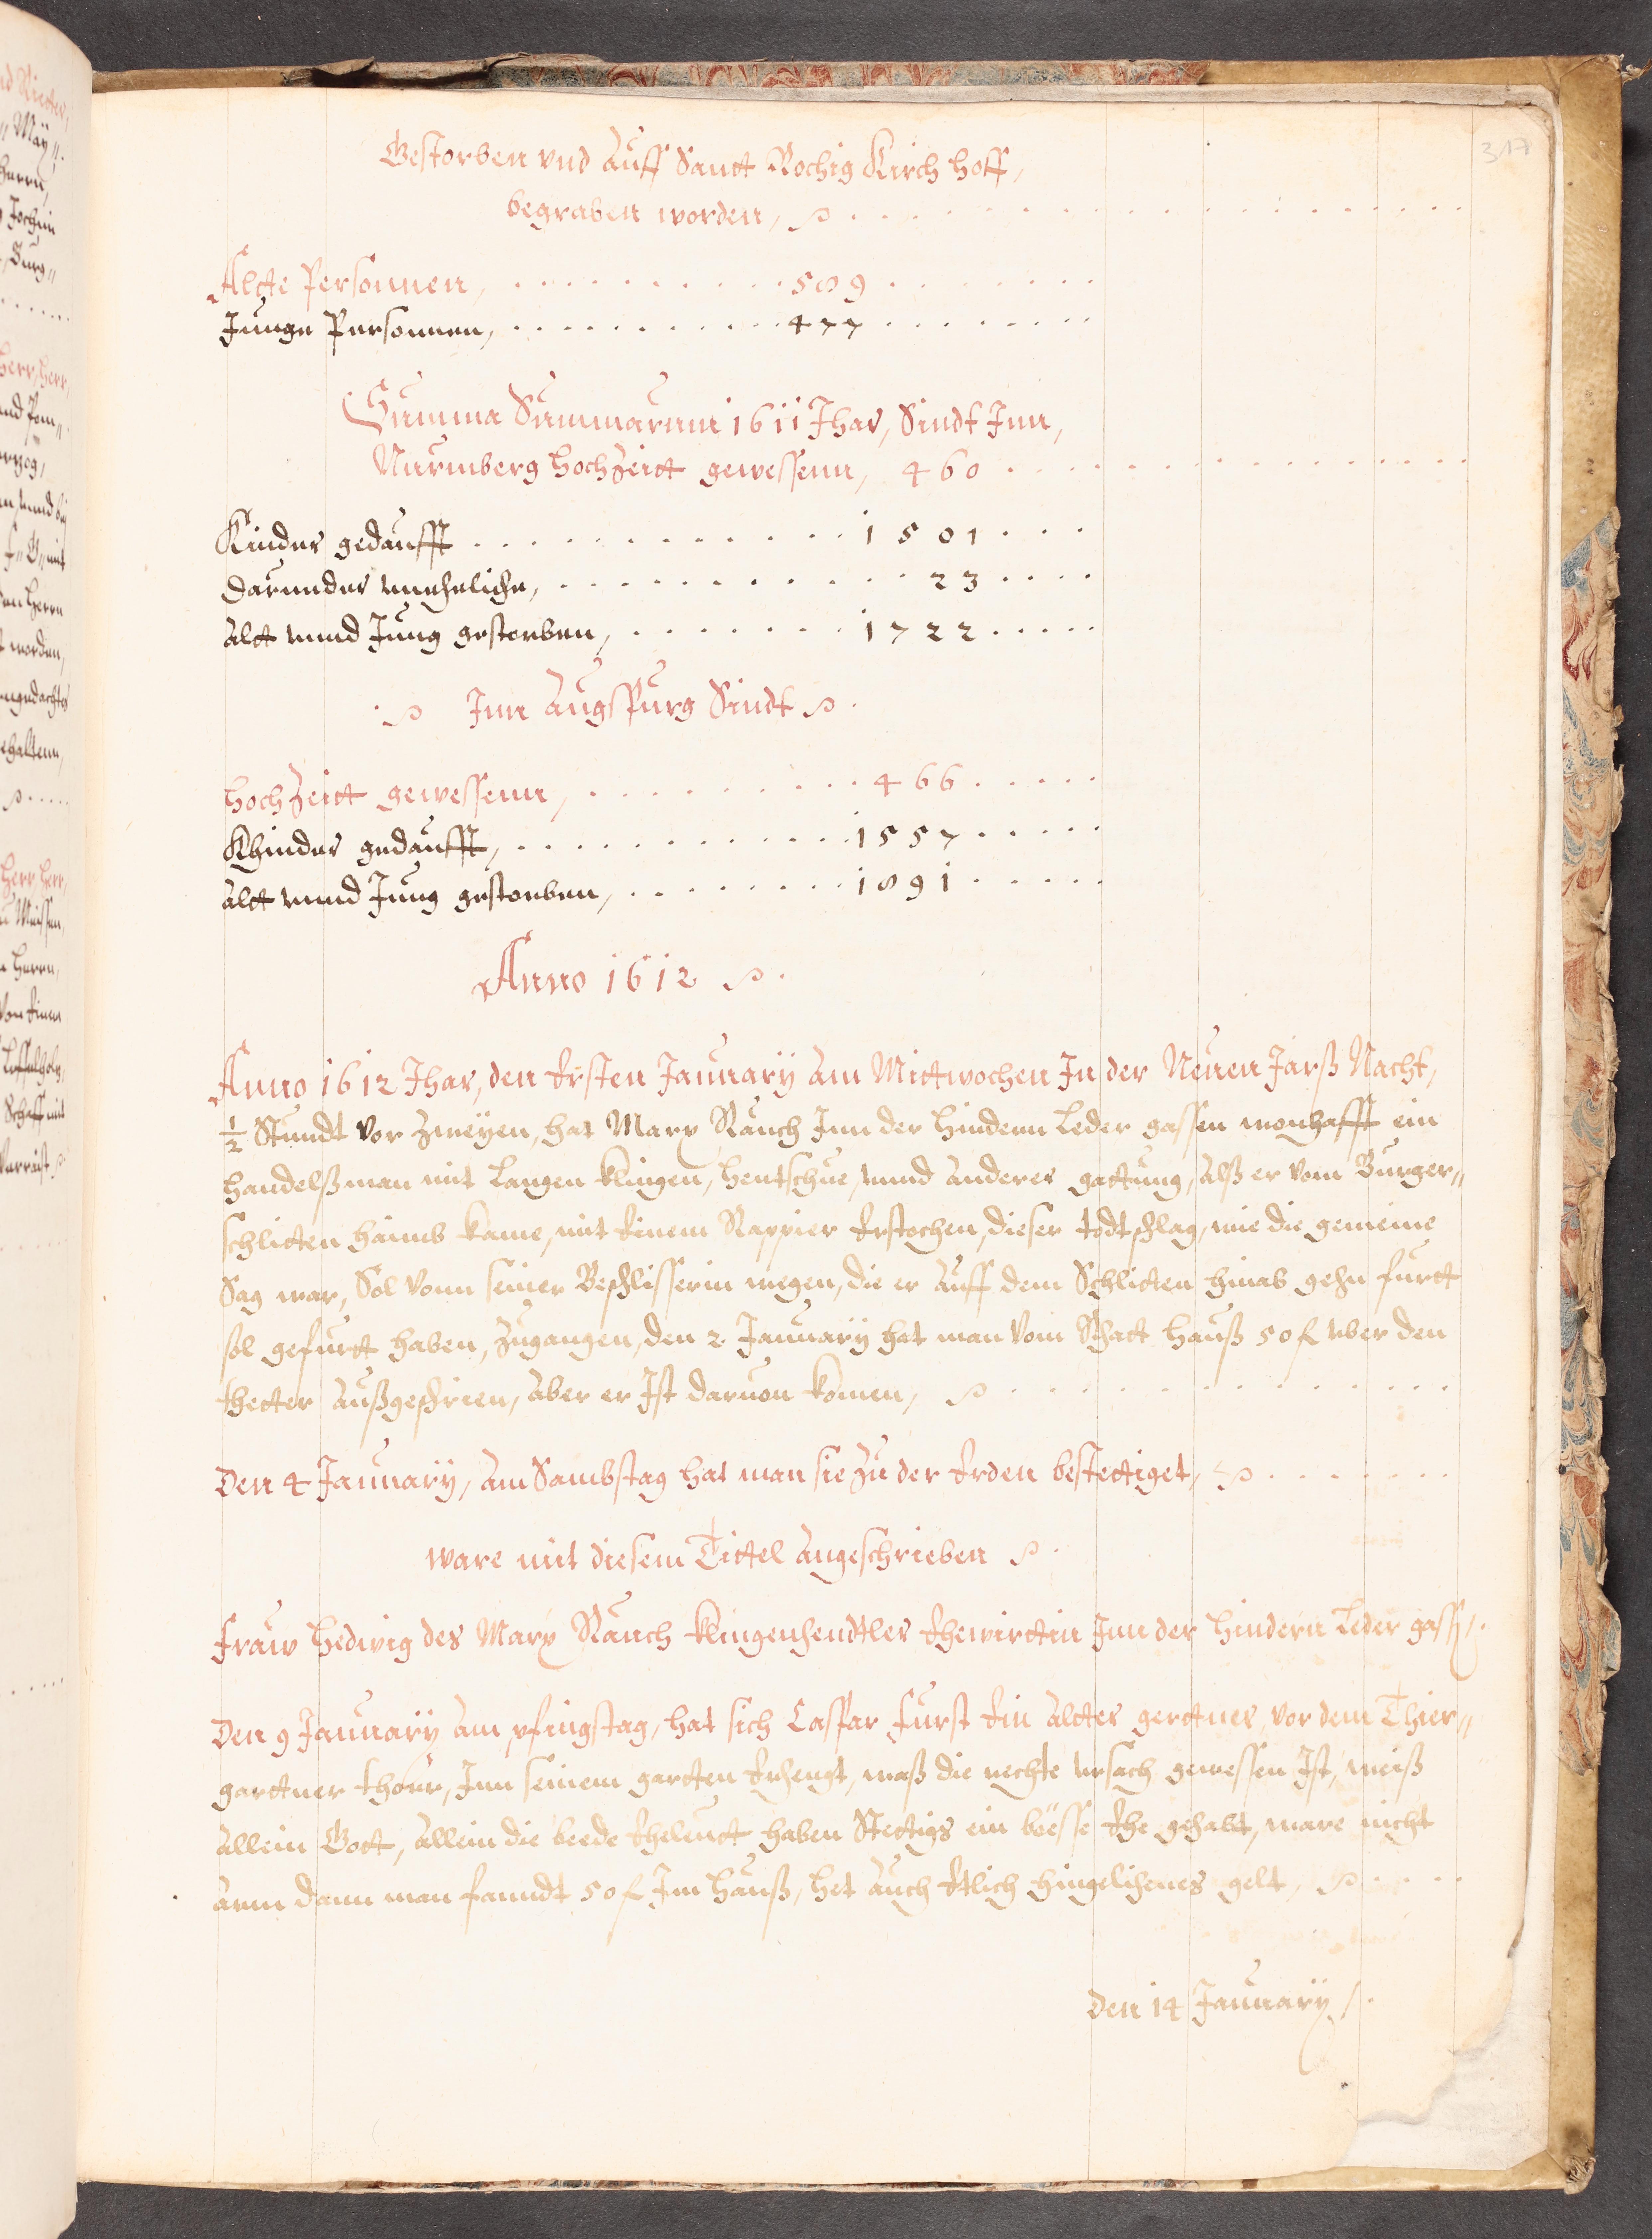 317
Gestorben vnd Auff Sanct Rochig Kirch hoff,
begraben worden,
Altte Personnen, 589
Junge Personnen, 477
Summa Summarum 1611 Jhar, Sindt Jnn,
Nurmberg hochzeitt gewessenn, 460
Kinder gedaufft 1501
darunder uneheliche, 23
Altt unnd Jung gestorben, 1722
Jnn Augspurg Sindt
hochzeitt gewessenn, 466
Khinder gedaufft, 1557
Altt unnd Jung gestorben, 1891
Anno 1612
Anno 1612 Jhar, den Ersten January Am Mittwochen Jn der Neuen Jarß Nacht,
½ Stundt vor zweyen, hat Marx Rauch Jnn der hindern Leder gassen wonhafft ein
handelßman mit Langen klingen, hentschue, unnd anderer gattung, Alß er vom Burger„
schlitten haimb kame, mit Einem Rappier Erstochen, dieser todtschlag, wie die gemeine
Sag war, Sol vonn seiner Beschlisserin wegen, die er Auff dem Schlitten hinab gehn furtt
sol gefurtt haben, zugangen, den 2 January hat man vom Rhatt hauß 50 fl uber den
thetter Außgeschrien, Aber er Jst daruon komen,
Den 4 January, Am Sambstag hat man sie zu der Erden bestettiget,
ware mit diesem Tittel Angeschrieben
Fraw Hedwig des Marx Rauch klingenhendtler Ehewirttin Jnn der hindern Leder gassn
Den 9 January Am pfingstag, hat sich Caspar Furst Ein Altter gerttner, vor dem Thier„
garttner thorr, Jnn seinem gartten Erhengt, waß die rechte ursach gewessen Jst, weiß
Allein Gott, Allein die beede Eheleutt haben Stettigs ein böesse Ehe gehabt, ware nicht
Arm dann man fanndt 50 fl Jm hauß, het Auch Etlich hingelihenes gelt,
den 14 January